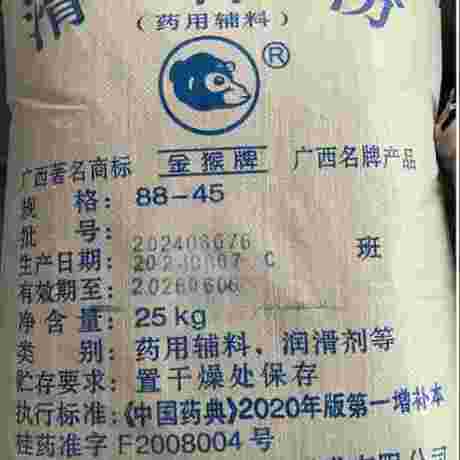 滑石粉
（药用辅料）
®
广西著名商标 金猴牌 广西名牌产品
规 格：88-45
批 号：
生产日期： C 班
有效期至：20260606
净含量：25kg
类 别：药用辅料、润滑剂等
贮存要求：置干燥处保存
执行标准：《中国药典》2020年版第一增补本
桂药准字F2008004号